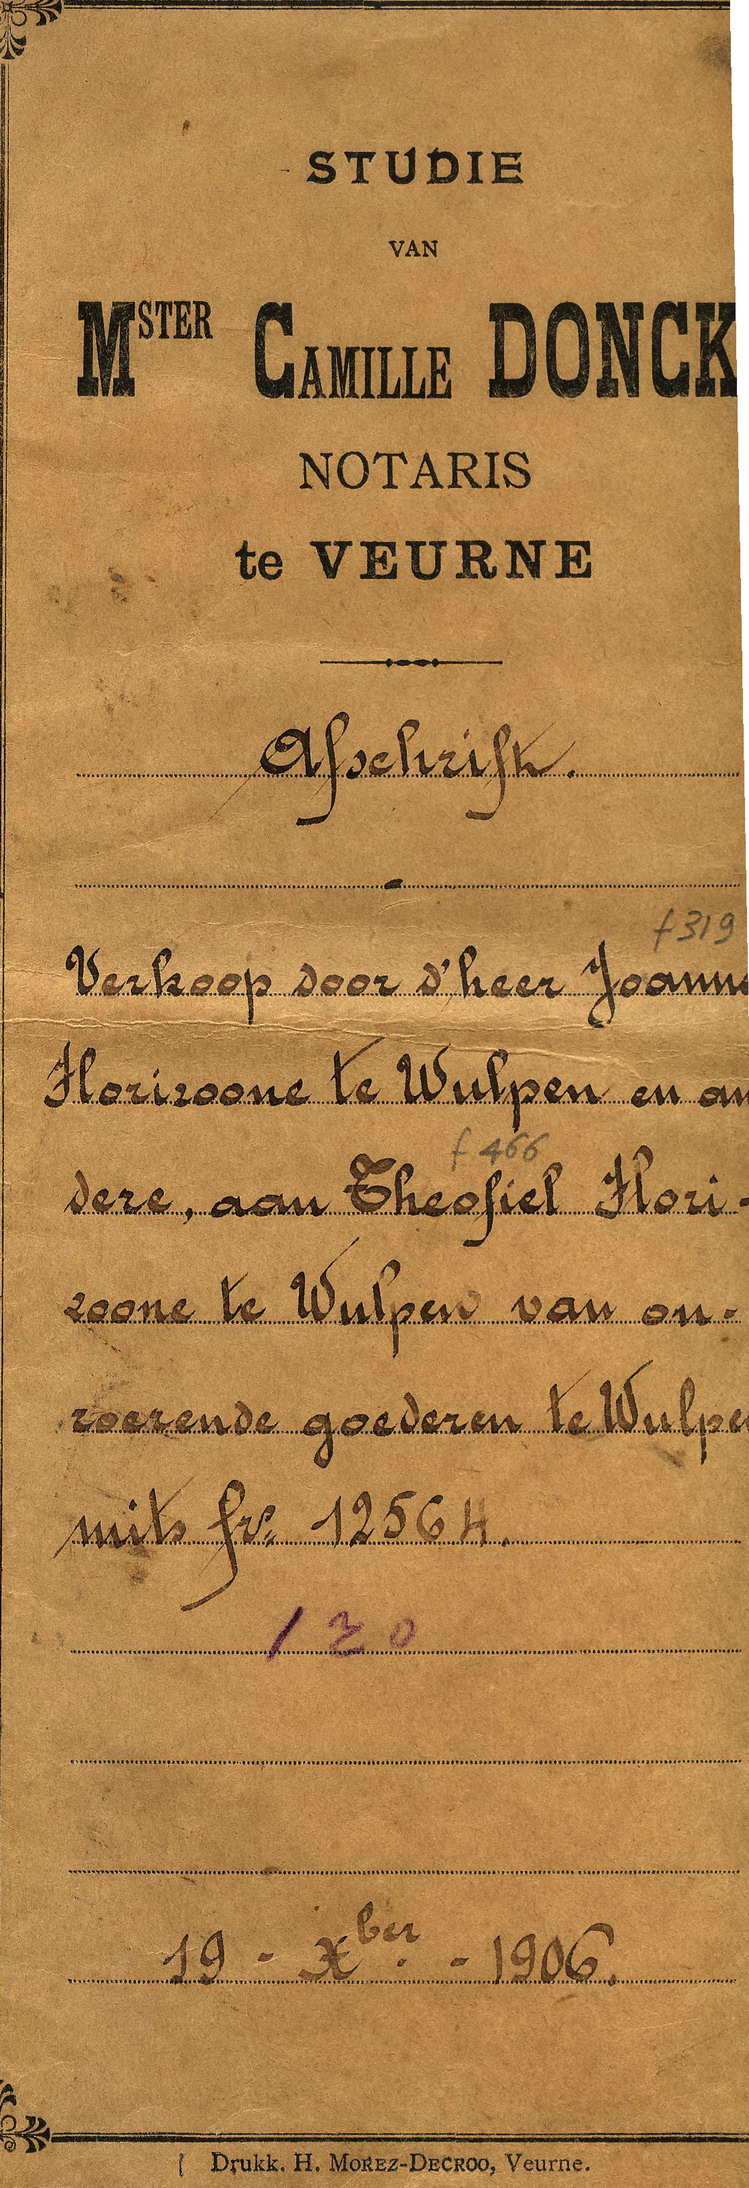 STUDIE
VAN
MSTER CAMILLE DONCK
NOTARIS
te VEURNE
Afschrift.
f 319
Verkoop door d'heer Joanne
Florizoone te Wulpen en an
dere, aan Theofiel Flori-
f 466
zoone te Wulpen van on-
roerende goederen te Wulpen
mits fr. 12564.
120
19 - Xber - 1906.
Drukk. H. MOREZ-DECROO, Veurne.